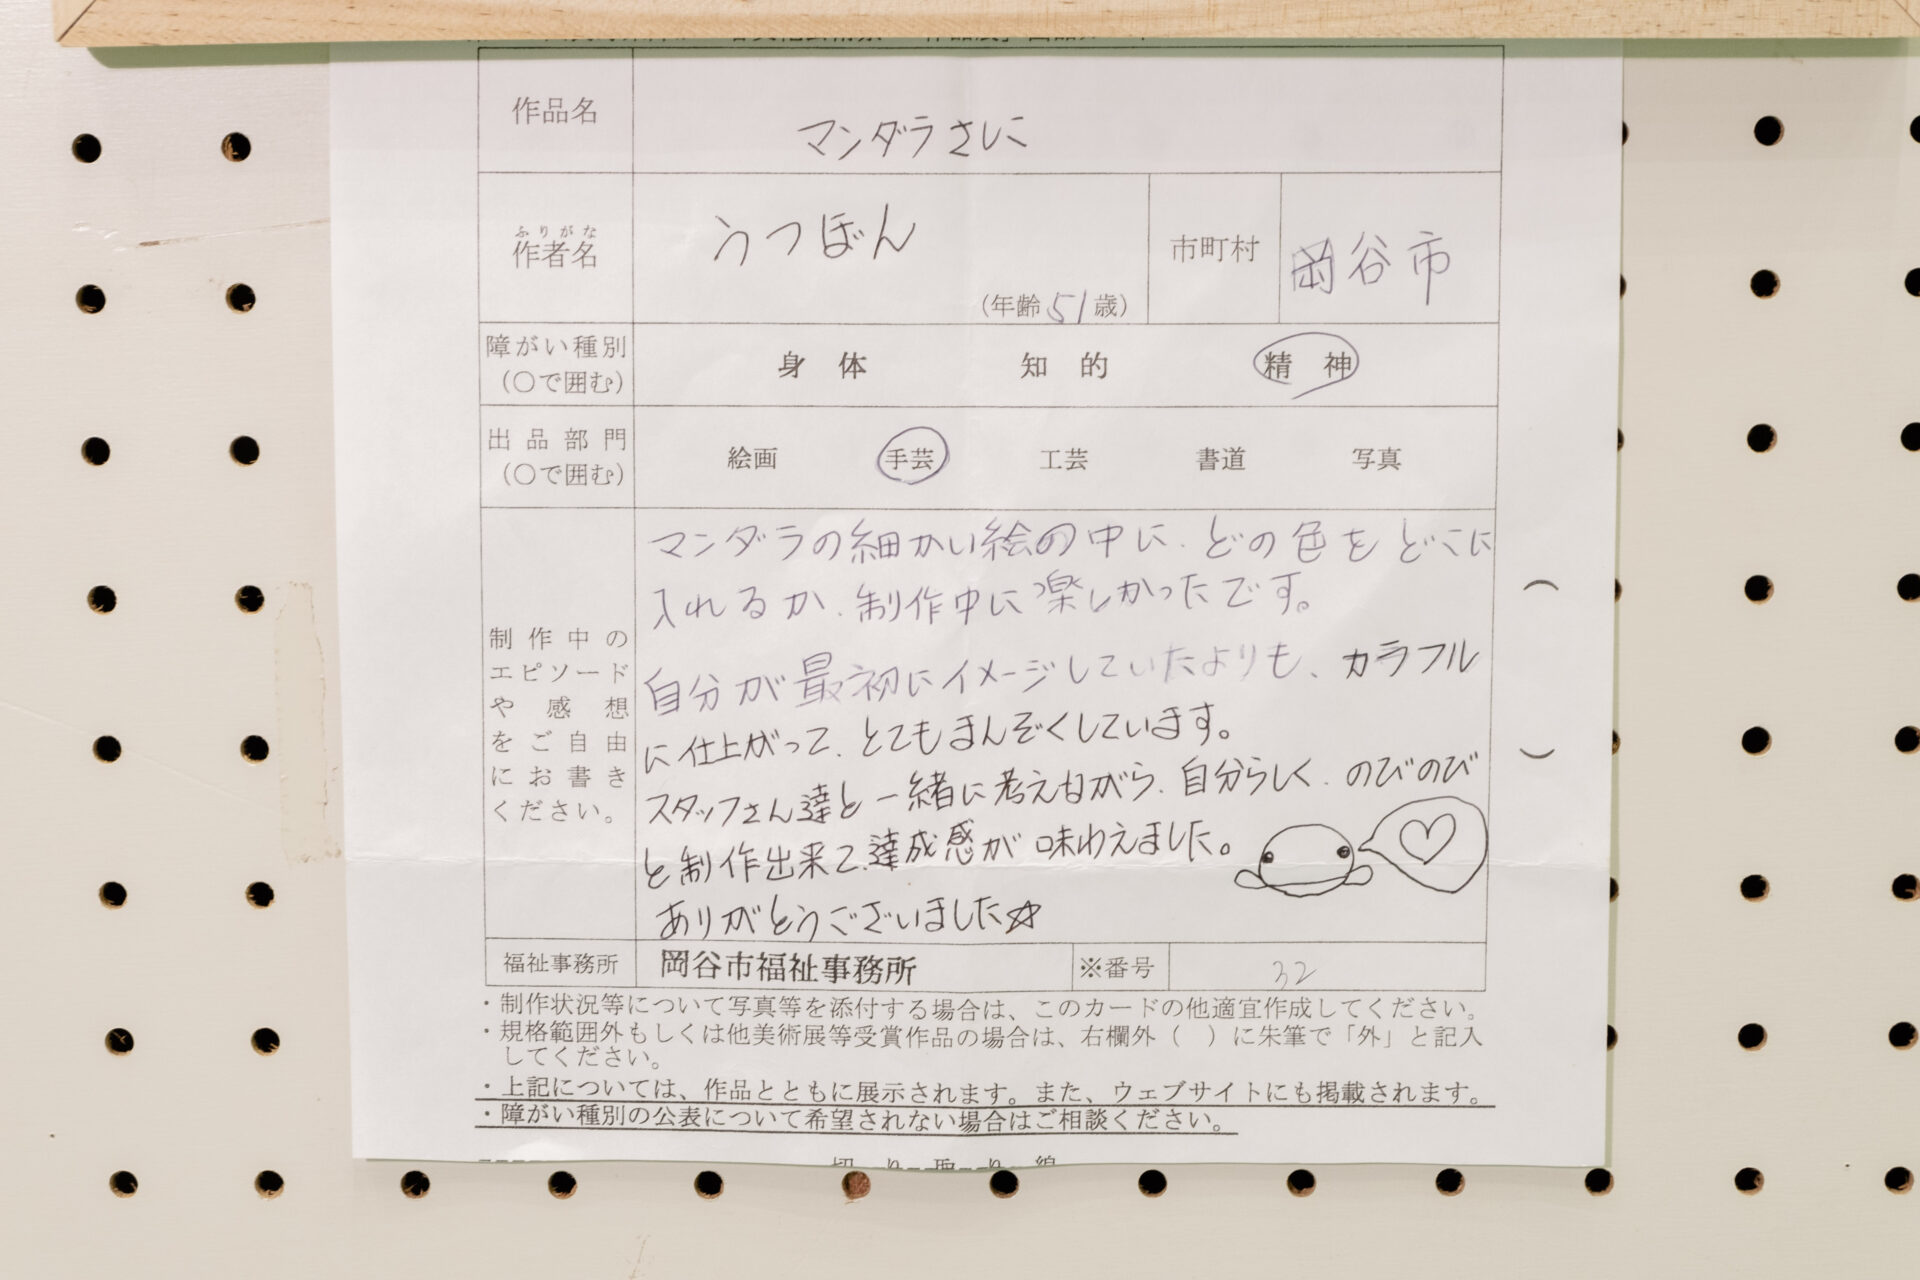 作品名 マンダラさしこ
ふりがな
作者名 うつぼん (年齢 51 歳) 市町村 岡谷市
障がい種別 (○で囲む) 身体 知的 精神
出品部門 (○で囲む) 絵画 手芸 工芸 書道 写真
制作中の
エピソード
や感想
をご自由
にお書き
ください。
マンダラの細かい絵の中に、どの色をどこに
入れるか、制作中に楽しかったです。
自分が最初にイメージしていたよりも、カラフル
に仕上がって、とてもまんぞくしています。
スタッフさん達と一緒に考えながら、自分らしく、のびのび
と制作出来て、達成感が味わえました。
ありがとうございました☆
福祉事務所 岡谷市福祉事務所 ※番号 32
・制作状況等について写真等を添付する場合は、このカードの他適宜作成してください。
・規格範囲外もしくは他美術展等受賞作品の場合は、右欄外（　）に朱筆で「外」と記入
してください。
・上記については、作品とともに展示されます。また、ウェブサイトにも掲載されます。
・障がい種別の公表について希望されない場合はご相談ください。
切り取り線